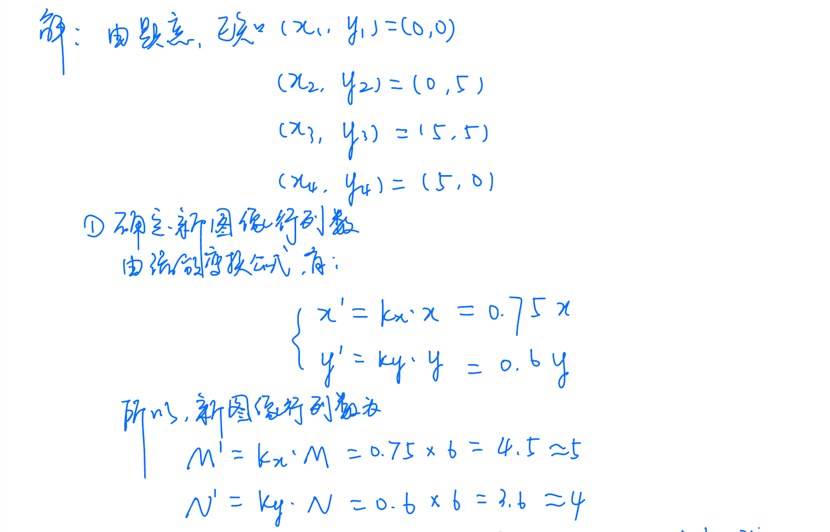 解：由题意，已知 (x₁, y₁)=(0,0)
(x₂, y₂)=(0,5)
(x₃, y₃)=(5,5)
(x₄, y₄)=(5,0)
① 确定新图像行列数
由缩放变换公式，有：
x' = kx·x = 0.75x
y' = ky·y = 0.6y
所以，新图像行列数为
M' = kx·M = 0.75×6 = 4.5≈5
N' = ky·N = 0.6×6 = 3.6≈4